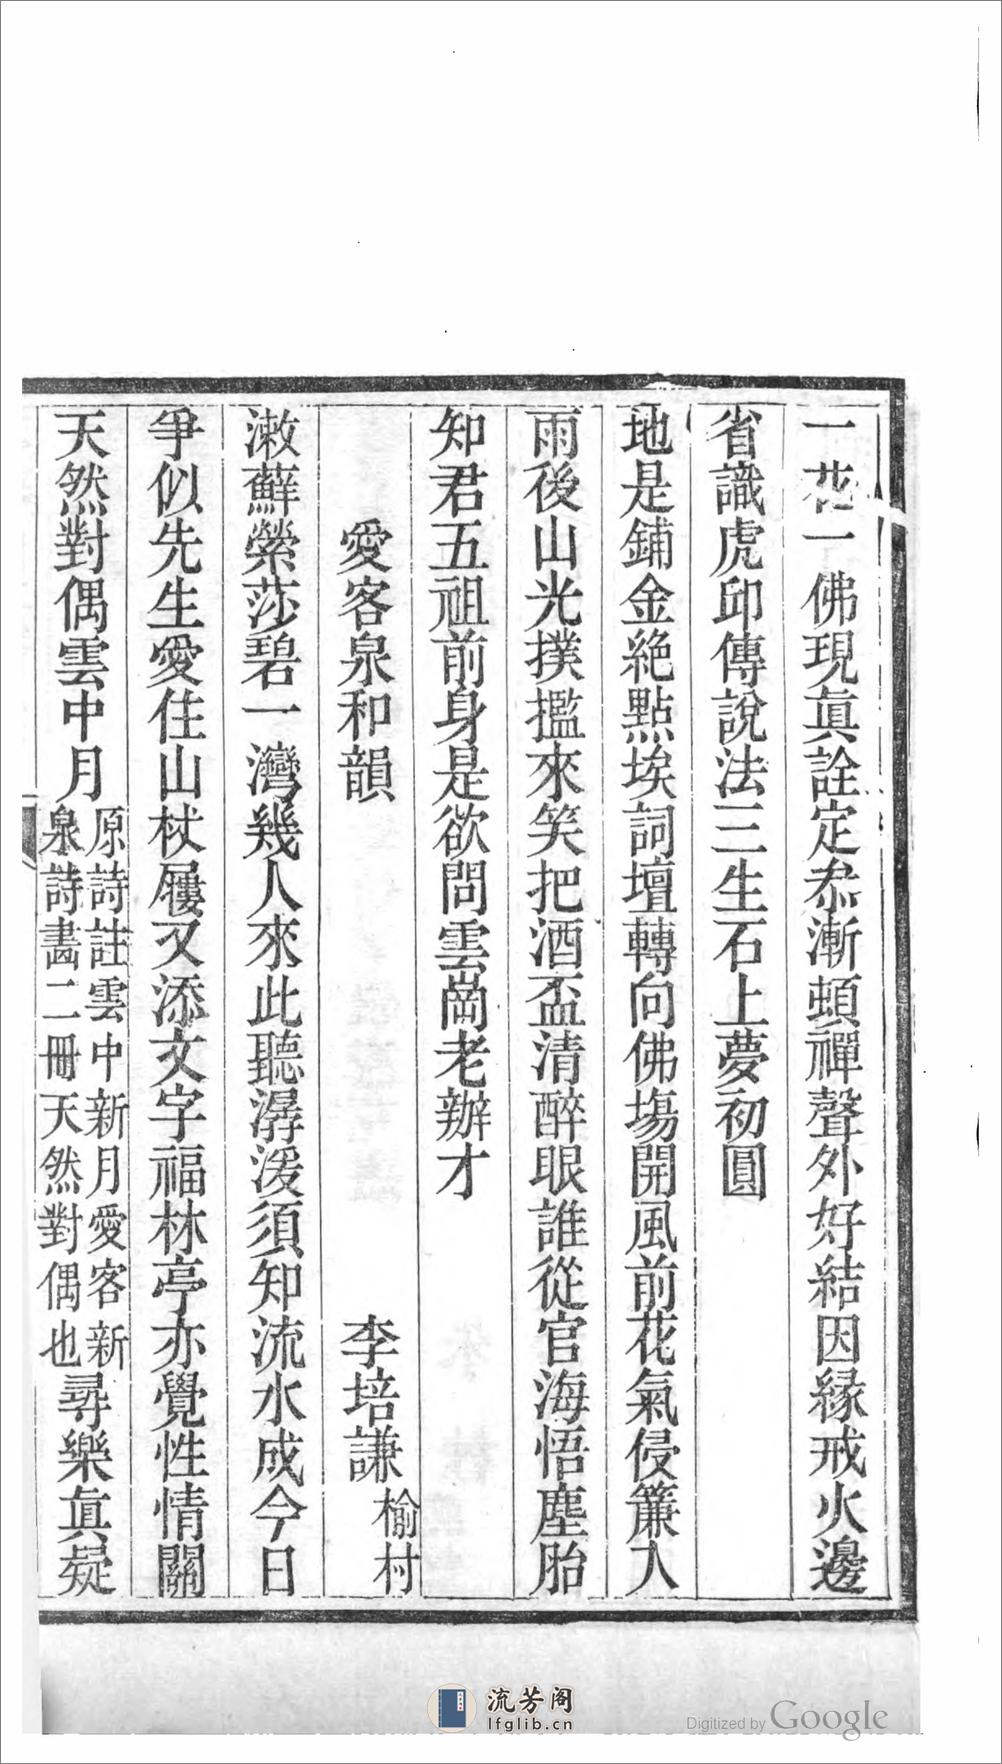 一花一佛現眞詮定叅漸頓禪聲外好結因緣戒火邊
省識虎邱傳說法三生石上夢初圓
地是鋪金絶點埃詞壇轉向佛塲開風前花氣侵簾入
雨後山光撲攬來笑把酒盃清醉眼誰從官海悟塵胎
知君五祖前身是欲問雲崗老辦才
愛客泉和韻 李培謙榆村
漱蘚縈莎碧一灣幾人來此聽潺湲須知流水成今日
爭似先生愛住山杖屨又添文字福林亭亦覺性情關
天然對偶雲中月原詩註雲中新月愛客新泉詩畵二冊天然對偶也尋樂眞疑
流芳阁
lfglib.cn
Digitized by Google